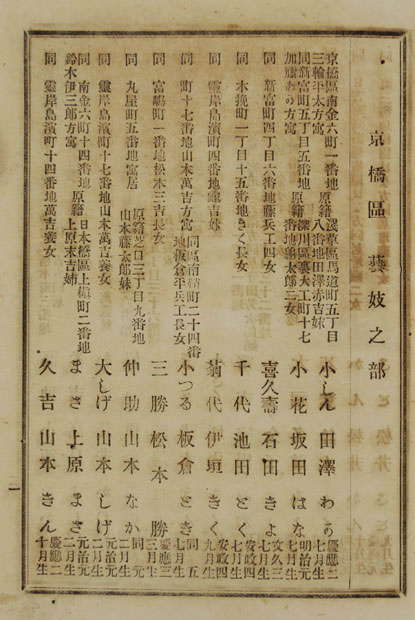 京橋區藝妓之部
京橋區南金六町一番地 原籍淺草區馬道町五丁目
三輪平太方寓 八番地田澤赤吉妹
小しん 田澤わか 慶應二七月生
同新富町五丁目五番地 原籍深川區裏大工町十七
加藤わの方寓 番地 太郎二女
小花 坂田はな 明治元七月生
同 新富町四丁目六番地藤兵工四女 喜久壽 石田きよ 文久三七月生
同 木挽町一丁目十五番地きく長女 千代 池田とく 安政四七月生
同 靈岸島濱町四番地 吉妹 菊代 伊垣きく 安政四九月生
同 町十七番地山本萬吉方寓 同區南 町二十四番地板倉平兵工長女 小つる 板倉とき 同五七月生
同 富嶋町一番地松本三吉長女 三勝 松本勝 慶應三三月生
同 丸屋町五番地寄居 原籍芝口三丁目九番地
山本藤太郎妹
仲助 山本なか 同元二月生
同 靈岸島濱町十七番地山本萬吉養女 大しげ 山本しげ 元治元二月生
同 南金六町十四番地 原籍日本橋區上槇町二番地
鈴木伊三郎方寓 上原末吉姉
まさ 上原まさ 元治元二月生
同 靈岸島濱町十四番地萬吉養女 久吉 山本きん 慶應二十月生
一